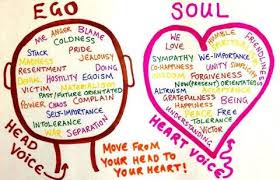 EGO
ME ANGER BLAME
COLDNESS
STACK
PRIDE
MADNESS
JEALOUSY
RESENTMENT
DOING
DENIAL HOSTILITY EGOISM
VICTIM MATERIALISM
PAST/FUTURE ORIENTATED
POWER CHAOS COMPLAIN
SELF-IMPORTANCE
INTOLERANCE
WAR SEPARATION
HEAD
VOICE
SOUL
HUMBLE
FRIENDLINESS
WE
LOVE
SYMPATHY WE-IMPORTANCE
CO-HAPPINESS UNITY
WISDOM FORGIVENESS
NOW(PRESENT) ORIENTATED
ALTRUISM ACCEPTANCE
GRATEFULNESS BEING
HAPPINESS
PEACE FREE
UNDERSTANDING
TOLERANCE
VICTOR
HEART VOICE
MOVE FROM
YOUR HEAD TO
YOUR HEART!